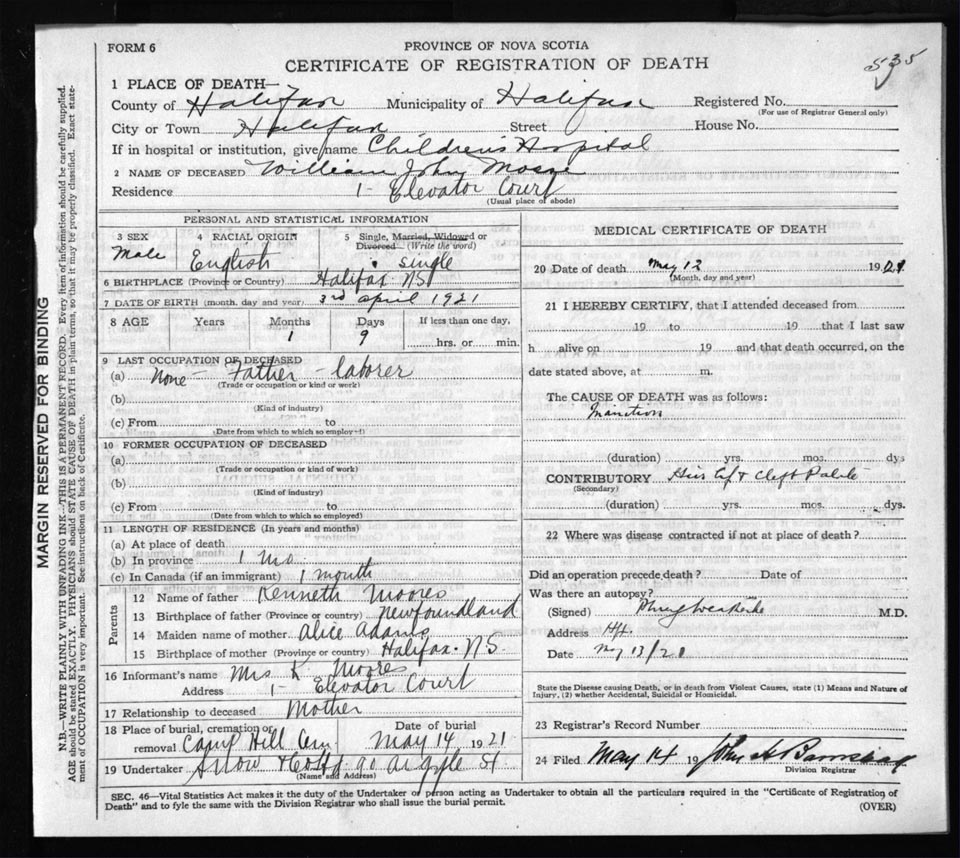 FORM 6
PROVINCE OF NOVA SCOTIA
535
CERTIFICATE OF REGISTRATION OF DEATH
1 PLACE OF DEATH—
County of Halifax Municipality of Halifax Registered No.
(For use of Registrar General only)
City or Town Halifax Street House No.
If in hospital or institution, give name Children's Hospital
2 NAME OF DECEASED William John
Residence 1- Elevator Court
(Usual place of abode)
PERSONAL AND STATISTICAL INFORMATION
3 SEX 4 RACIAL ORIGIN 5 Single, Married, Widowed or
Divorced (Write the word)
Male English single
6 BIRTHPLACE (Province or Country) Halifax NS
7 DATE OF BIRTH (month, day and year) 3rd April 1921
8 AGE Years Months Days If less than one day,
1 9 hrs. or min.
9 LAST OCCUPATION OF DECEASED
(a) None - Father - laborer
(Trade or occupation or kind or work)
(b)
(Kind of industry)
(c) From to
(Date from which to which so employed)
10 FORMER OCCUPATION OF DECEASED
(a)
(Trade or occupation or kind of work)
(b)
(Kind of industry)
(c) From to
(Date from which to which so employed)
11 LENGTH OF RESIDENCE (In years and months)
(a) At place of death
(b) In province 1 mo
(c) In Canada (if an immigrant) 1 month
Parents
12 Name of father Kenneth Moores
13 Birthplace of father (Province or country) Newfoundland
14 Maiden name of mother Alice Adams
15 Birthplace of mother (Province or country) Halifax. N S.
16 Informant's name Mrs K Moores
Address 1- Elevator Court
17 Relationship to deceased Mother
18 Place of burial, cremation or Date of burial
removal Camp Hill Cem May 14 1921
19 Undertaker Snow & Co Ltd 90 Argyle St
(Name and Address)
MEDICAL CERTIFICATE OF DEATH
20 Date of death May 12 1921
(Month, day and year)
21 I HEREBY CERTIFY, that I attended deceased from
19 to 19 that I last saw
h alive on 19 and that death occurred, on the
date stated above, at m.
The CAUSE OF DEATH was as follows:
Inanition
(duration) yrs. mos. dys
CONTRIBUTORY Hare Lip & Cleft Palate
(Secondary)
(duration) yrs. mos. dys.
22 Where was disease contracted if not at place of death?
Did an operation precede death? Date of
Was there an autopsy?
(Signed) M.D.
Address Hfx.
Date May 13/21
State the Disease causing Death, or in death from Violent Causes, state (1) Means and Nature of
Injury, (2) whether Accidental, Suicidal or Homicidal.
23 Registrar's Record Number
24 Filed May 14 19 John A
Division Registrar
SEC. 46—Vital Statistics Act makes it the duty of the Undertaker or person acting as Undertaker to obtain all the particulars required in the "Certificate of Registration of
Death" and to fyle the same with the Division Registrar who shall issue the burial permit.
(OVER)
MARGIN RESERVED FOR BINDING
N.B.—WRITE PLAINLY WITH UNFADING INK—THIS IS A PERMANENT RECORD. Every item of information should be carefully supplied.
AGE should be stated EXACTLY. PHYSICIANS should STATE CAUSE OF DEATH in plain terms, so that it may be properly classified. Exact state-
ment of OCCUPATION is very important. See instructions on back of Certificate.